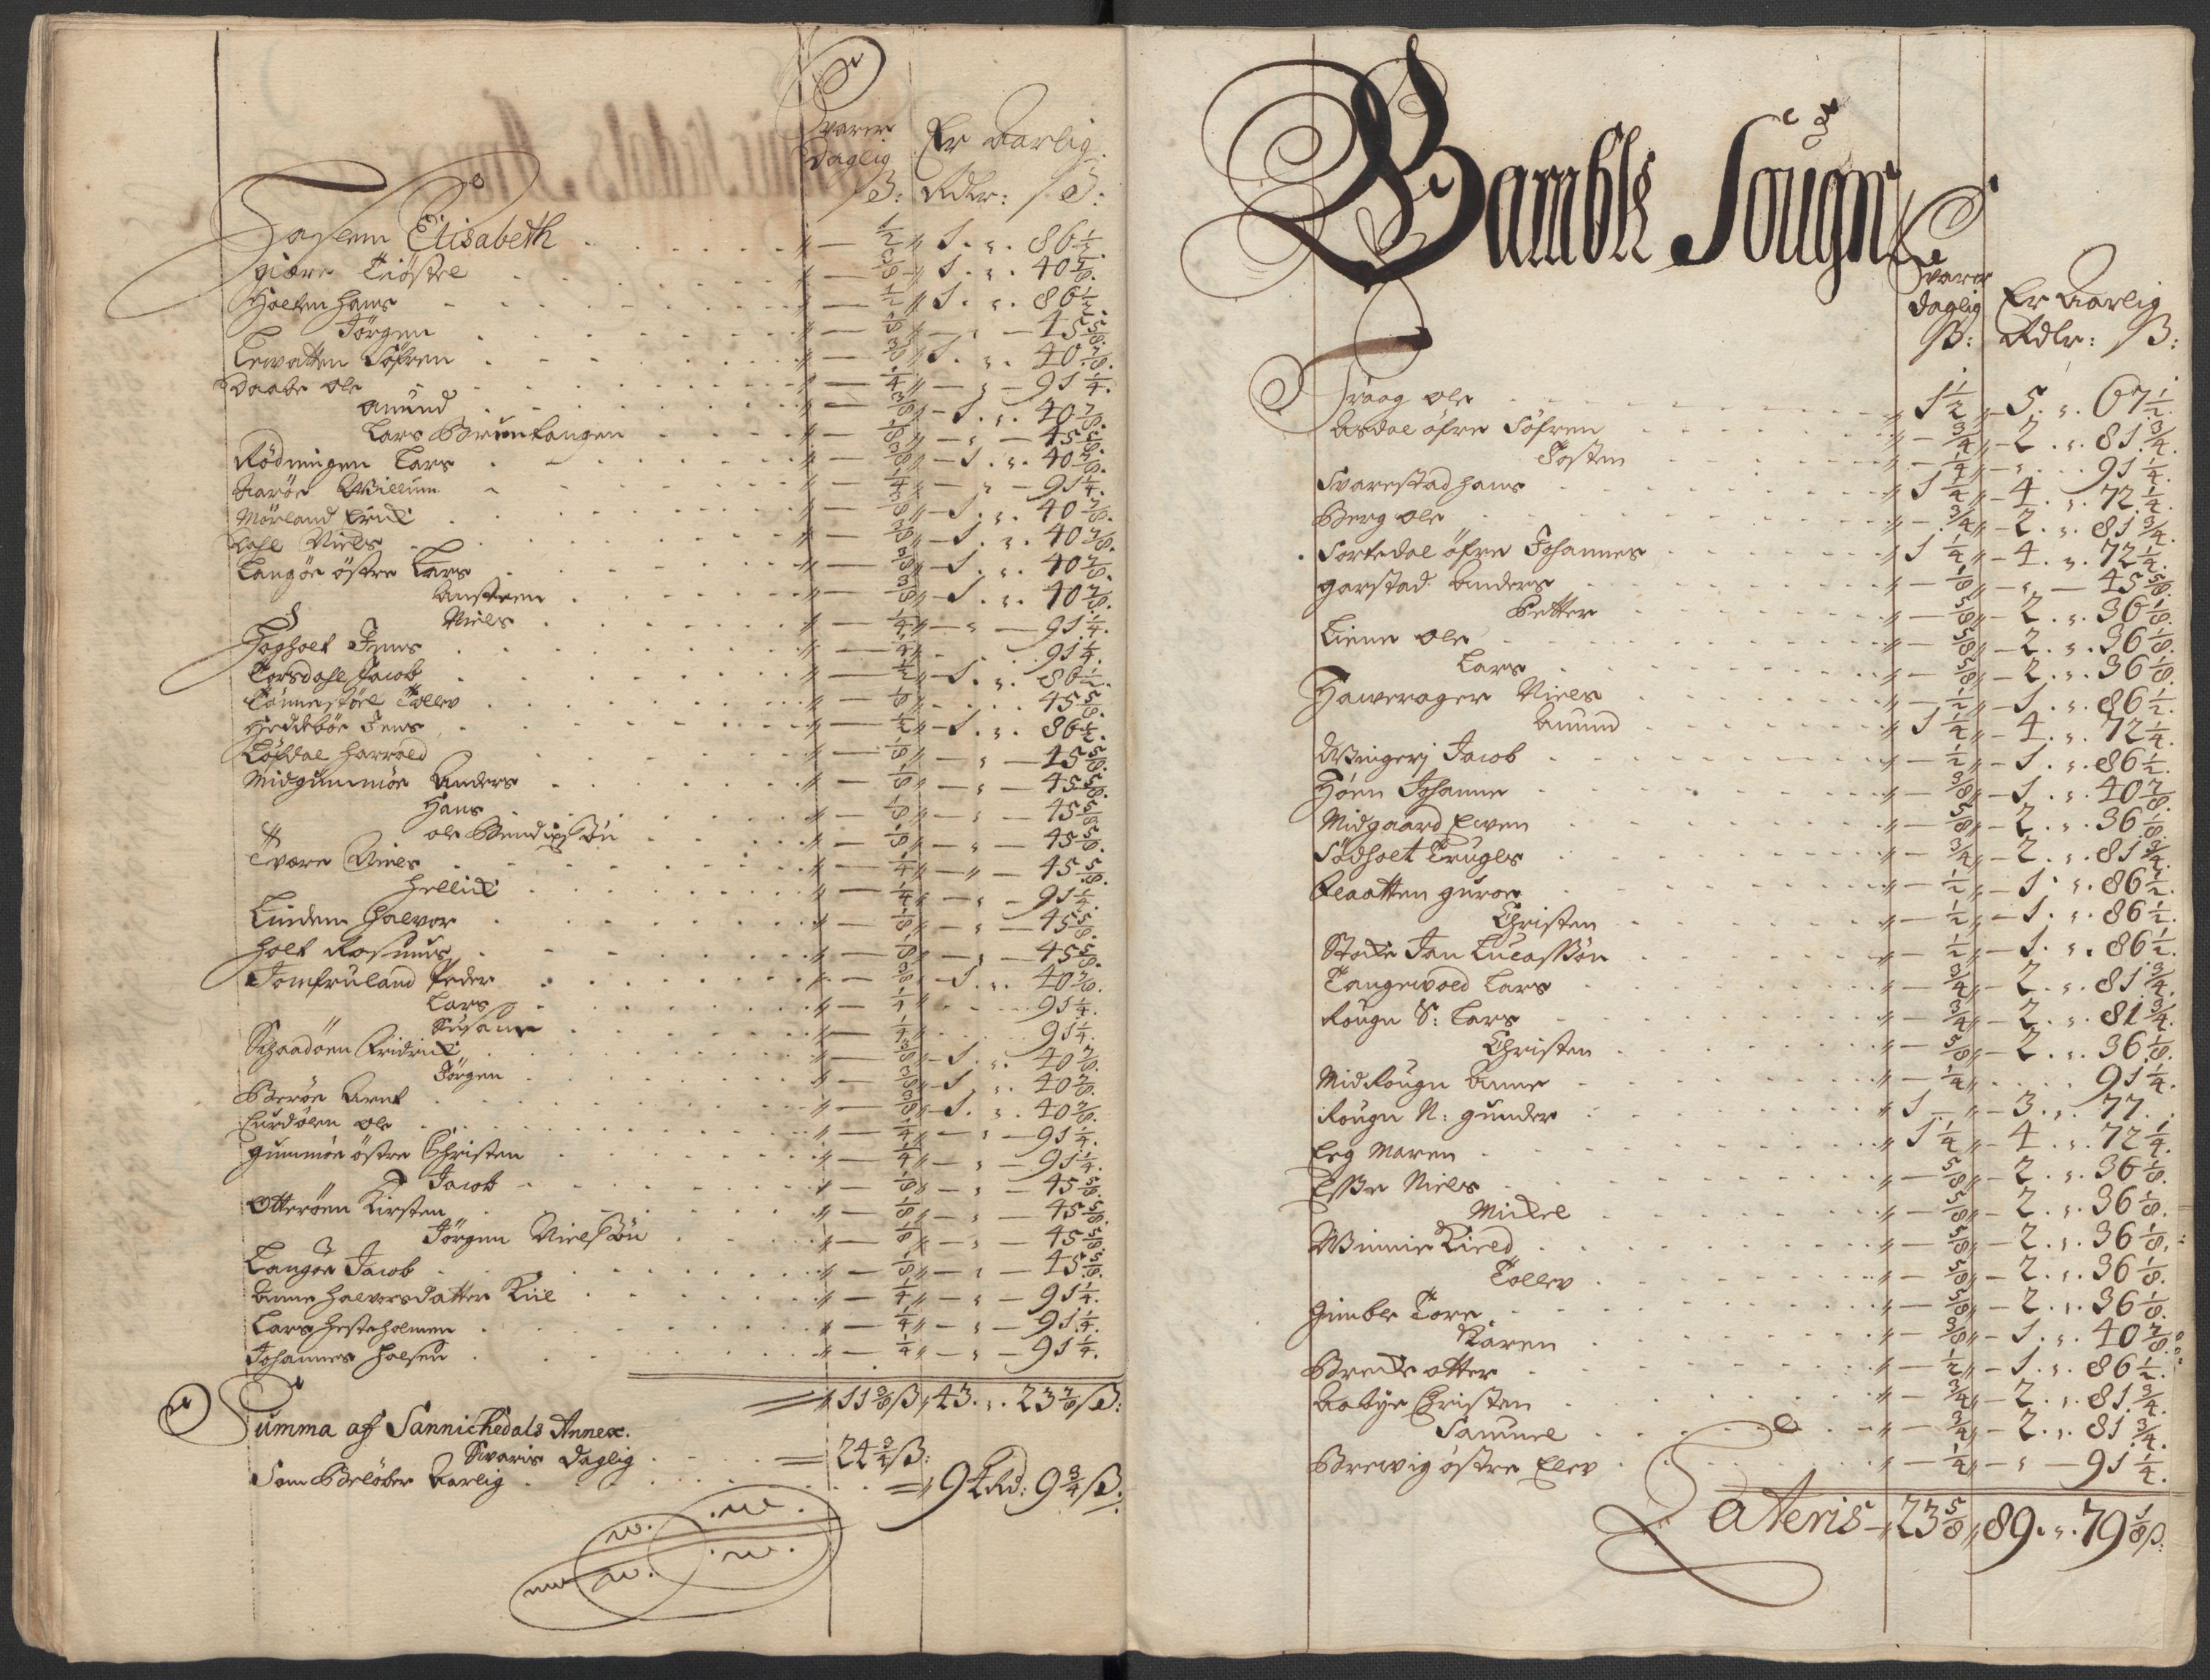 Svarer
Daglig
Er Aarlig
ß: Rdlr: ß:
Haslem Elisabeth - ½ 1 . 86½
giære Kiöstel - 3/8 1 . 40 7/8
Holten Hans - ½ 1 . 86½
Jörgen - 1/8 - 45 5/8
Lewatten Söfren - 3/8 1 . 40 7/8
Daabe ole - ¼ - 91¼
Amund - 3/8 1 . 40 7/8
Lars Bruntangen - 1/8 - 45 5/8
Rödningen Lars - 3/8 1 . 40 7/8
Aaröe Willum - ¼ - 91¼
Mörland Erick - 3/8 1 . 40 7/8
Dahl Niels - 3/8 1 . 40 7/8
Langöe östre Lars - 3/8 1 . 40 7/8
Austeen - 3/8 1 . 40 7/8
Niels - ¼ - 91¼
Fogholt Jens - ¼ - 91¼
Torsdahl Jacob - ½ 1 . 86½
Tönnestöel Tollev - 1/8 - 45 5/8
Heddeböe Jens - ½ 1 . 86½
Löfdal Harrald - 1/8 - 45 5/8
Midgummöe Anders - 1/8 - 45 5/8
Hans - 1/8 - 45 5/8
ole Bendixßön - 1/8 - 45 5/8
Tvære Niels - ¼ - 45 5/8
Hellick - ¼ - 91¼
Linden Halvor - 1/8 - 45 5/8
Holt Rasmus - 1/8 - 45 5/8
Jomfruland Peder - 3/8 1 . 40 7/8
Lars - ¼ - 91¼
Susanne - ¼ - 91¼
Schaadöen Fridrick - 3/8 1 . 40 7/8
Jörgen - 3/8 1 . 40 7/8
Beröe Arent - 3/8 1 . 40 7/8
Furdölen ole - ¼ - 91¼
gummöe östre Christen - ¼ - 91¼
Jacob - 1/8 - 45 5/8
Otteröen Kirsten - 1/8 - 45 5/8
Jörgen Nielßön - 1/8 - 45 5/8
Langöe Jacob - 1/8 - 45 5/8
Anne Halversdatter Kiil - ¼ - 91¼
Lars Hesteholmen - ¼ - 91¼
Johannes Halsen - ¼ - 91¼
11 3/8 ß 43 . 23 7/8 ß:
Summa aff Sannichedals Annex.
Svaris Daglig = 24¾ ß:
Som Belöber Aarlig = 94 Rd: 9¾ ß:
Bamble Sougn
Svarer
daglig
Er Aarlig
ß: Rdlr: ß:
Traag ole 1½ 5 . 67½
Asdal öfre Söfren - ¾ 2 . 81¾
Josten - ¼ - 91¼
Svarestad Hans 1¼ 4 . 72¼
Berg ole - ¾ 2 . 81¾
Sortedal öfre Johannes 1¼ 4 . 72¼
garstad Anders - 1/8 - 45 5/8
Petter - 5/8 2 . 36 1/8
Liene ole - 5/8 2 . 36 1/8
Lars - 5/8 2 . 36 1/8
Hawerager Niels - ½ 1 . 86½
Amund 1¼ 4 . 72¼
Wingerj Jacob - ½ 1 . 86½
Höen Johanne - 3/8 1 . 40 7/8
Midgaard Even - 5/8 2 . 36 1/8
Södholt Truglx - ¾ 2 . 81¾
Flaatten guroe - ½ 1 . 86½
Christen - ½ 1 . 86½
Stocke Jan Lucaßön - ½ 1 . 86½
Tangewald Lars - ¾ 2 . 81¾
Rougn S: Lars - ¾ 2 . 81¾
Christen - 5/8 2 . 36 1/8
Mid Rougn Anne - ¼ . 91¼
Rougn N: gunder 1 - 3 . 77.
Eeg Maren 1¼ 4 . 72¼
Eßbe Niels - 5/8 2 . 36 1/8
Mickel - 5/8 2 . 36 1/8
Winnie Kield - 5/8 2 . 36 1/8
Tollev - 5/8 2 . 36 1/8
gimble Tore - 5/8 2 . 36 1/8
Karen - 3/8 1 . 40 7/8
Brecke otter - ½ 1 . 86½
Aabye Christen - ¾ 2 . 81¾
Samuel - ¾ 2 . 81¾
Brewig östre Elev - ¼ - 91¼
Lateris 23 5/8 89 . 79 1/8 ß: